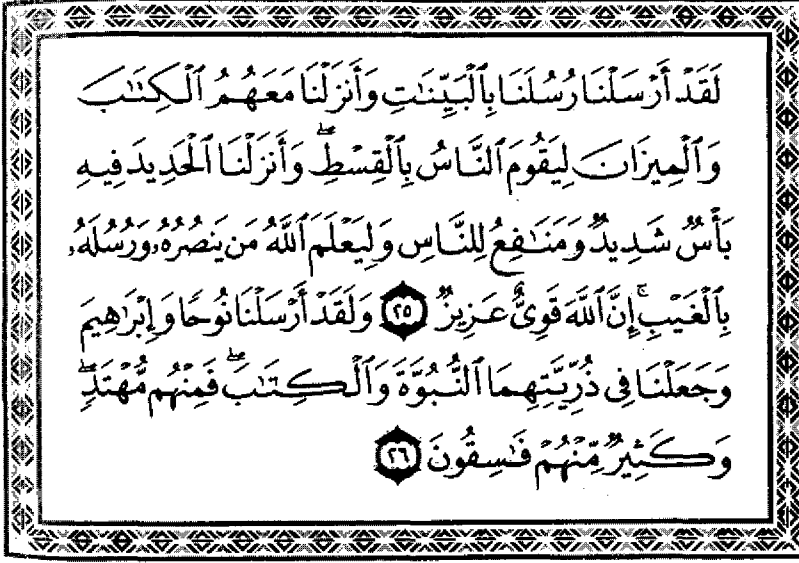 لَقَدْ أَرْسَلْنَا رُسُلَنَا بِٱلْبَيِّنَٰتِ وَأَنزَلْنَا مَعَهُمُ ٱلْكِتَٰبَ
وَٱلْمِيزَانَ لِيَقُومَ ٱلنَّاسُ بِٱلْقِسْطِۖ وَأَنزَلْنَا ٱلْحَدِيدَ فِيهِ
بَأْسٌ شَدِيدٌ وَمَنَٰفِعُ لِلنَّاسِ وَلِيَعْلَمَ ٱللَّهُ مَن يَنصُرُهُۥ وَرُسُلَهُۥ
بِٱلْغَيْبِۚ إِنَّ ٱللَّهَ قَوِىٌّ عَزِيزٌ ٢٥ وَلَقَدْ أَرْسَلْنَا نُوحًا وَإِبْرَٰهِيمَ
وَجَعَلْنَا فِى ذُرِّيَّتِهِمَا ٱلنُّبُوَّةَ وَٱلْكِتَٰبَۖ فَمِنْهُم مُّهْتَدٍۖ
وَكَثِيرٌ مِّنْهُمْ فَٰسِقُونَ ٢٦